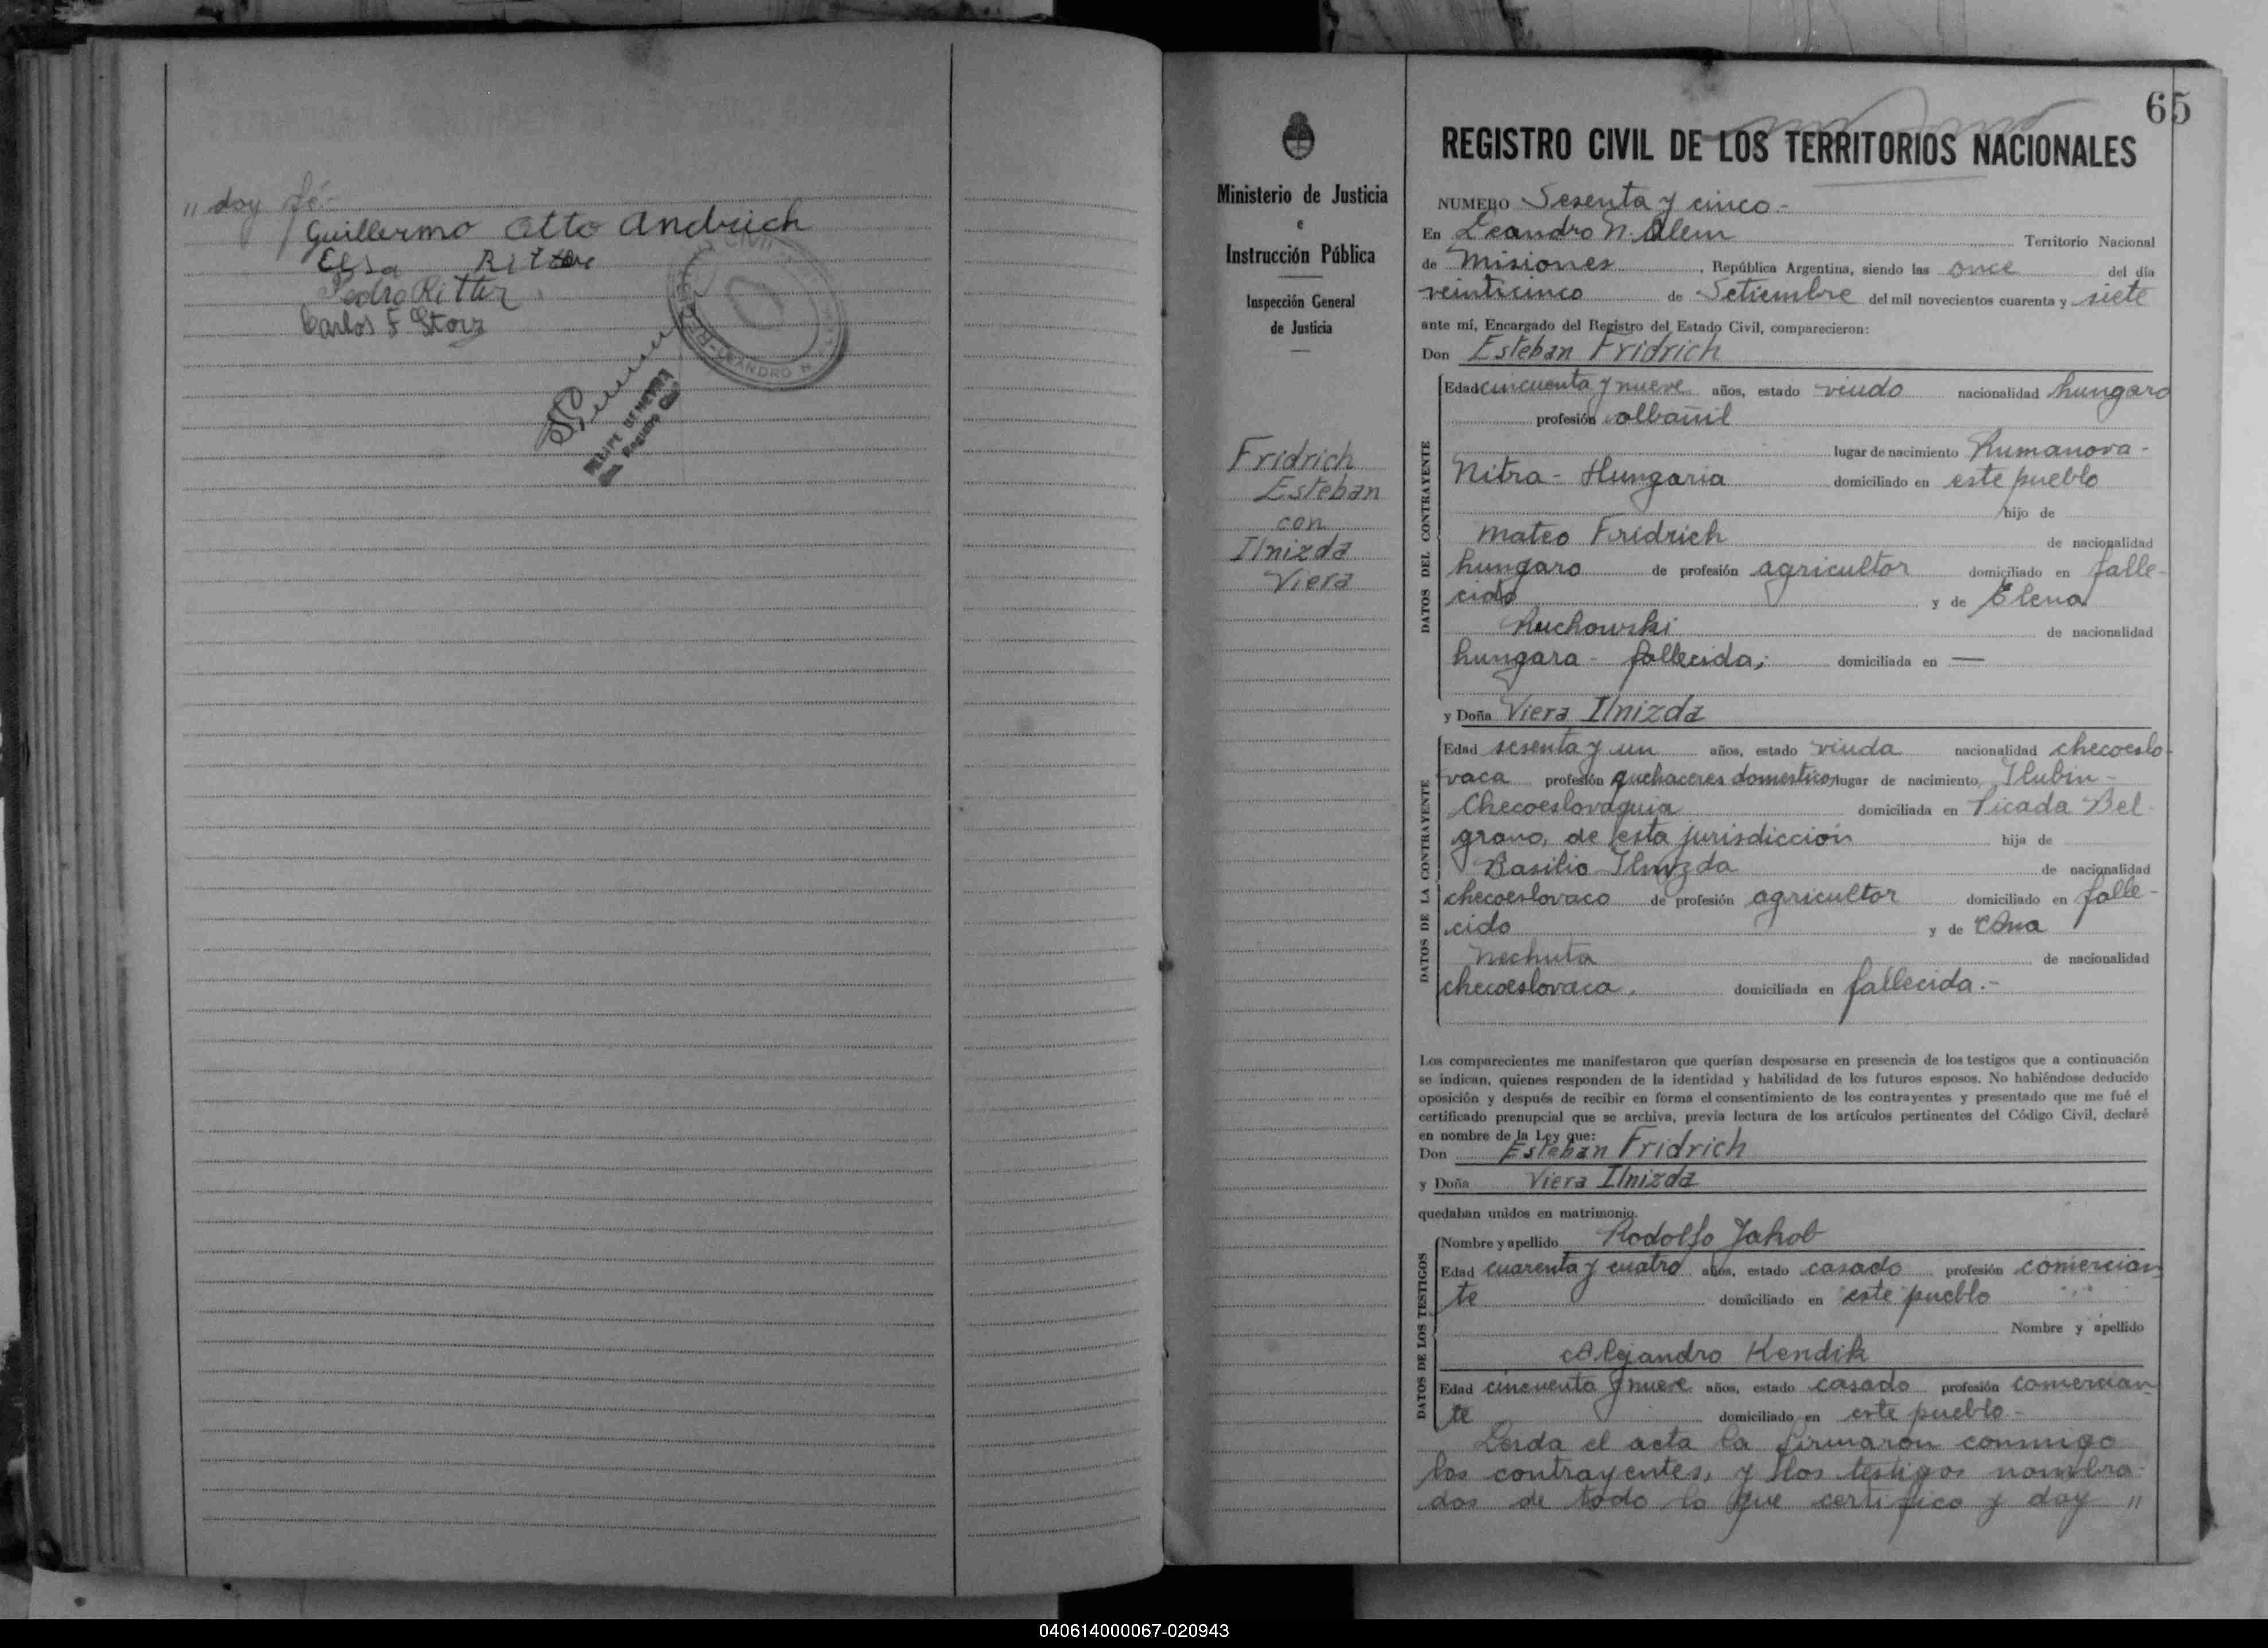 " doy fé.-
Guillermo Otto Andrich
Elsa Ritter
Pedro Ritter
Carlos F Storz
FELIPE BENEYRA
Enc. Registro Civil
65
Ministerio de Justicia
e
Instrucción Pública
Inspección General
de Justicia
Fridrich
Esteban
con
Ilnizda
Viera
REGISTRO CIVIL DE LOS TERRITORIOS NACIONALES
NUMERO Sesenta y cinco.-
En Leandro N. Alem Territorio Nacional
de Misiones, República Argentina, siendo las once del día
veinticinco de Setiembre del mil novecientos cuarenta y siete
ante mí, Encargado del Registro del Estado Civil, comparecieron:
Don Esteban Fridrich
DATOS DEL CONTRAYENTE
Edad cincuenta y nueve años, estado viudo nacionalidad hungaro
profesión albañil
lugar de nacimiento Rumanova-
Nitra- Hungaria domiciliado en este pueblo
hijo de
Mateo Fridrich de nacionalidad
hungaro de profesión agricultor domiciliado en falle-
cido y de Elena
Ruchowski de nacionalidad
hungara- fallecida; domiciliada en —
y Doña Viera Ilnizda
DATOS DE LA CONTRAYENTE
Edad sesenta y un años, estado viuda nacionalidad checoeslo-
vaca profesión quehaceres domesticos lugar de nacimiento Ilubin-
Checoeslovaquia domiciliada en Picada Bel-
grano, de esta jurisdiccion hija de
Basilio Ilnizda de nacionalidad
checoeslovaco de profesión agricultor domiciliado en falle-
cido y de Ana
Nechuta de nacionalidad
checoeslovaca, domiciliada en fallecida.-
Los comparecientes me manifestaron que querían desposarse en presencia de los testigos que a continuación
se indican, quienes responden de la identidad y habilidad de los futuros esposos. No habiéndose deducido
oposición y después de recibir en forma el consentimiento de los contrayentes y presentado que me fué el
certificado prenupcial que se archiva, previa lectura de los artículos pertinentes del Código Civil, declaré
en nombre de la Ley que:
Don Esteban Fridrich
y Doña Viera Ilnizda
quedaban unidos en matrimonio.
DATOS DE LOS TESTIGOS
Nombre y apellido Rodolfo Jakob
Edad cuarenta y cuatro años, estado casado profesión comercian
te domiciliado en este pueblo
Nombre y apellido
Alejandro Kendik
Edad cincuenta y nueve años, estado casado profesión comercian
te domiciliado en este pueblo-
Leida el acta la firmaron conmigo
los contrayentes, y los testigos nombra-
dos de todo lo que certifico y doy "
040614000067-020943